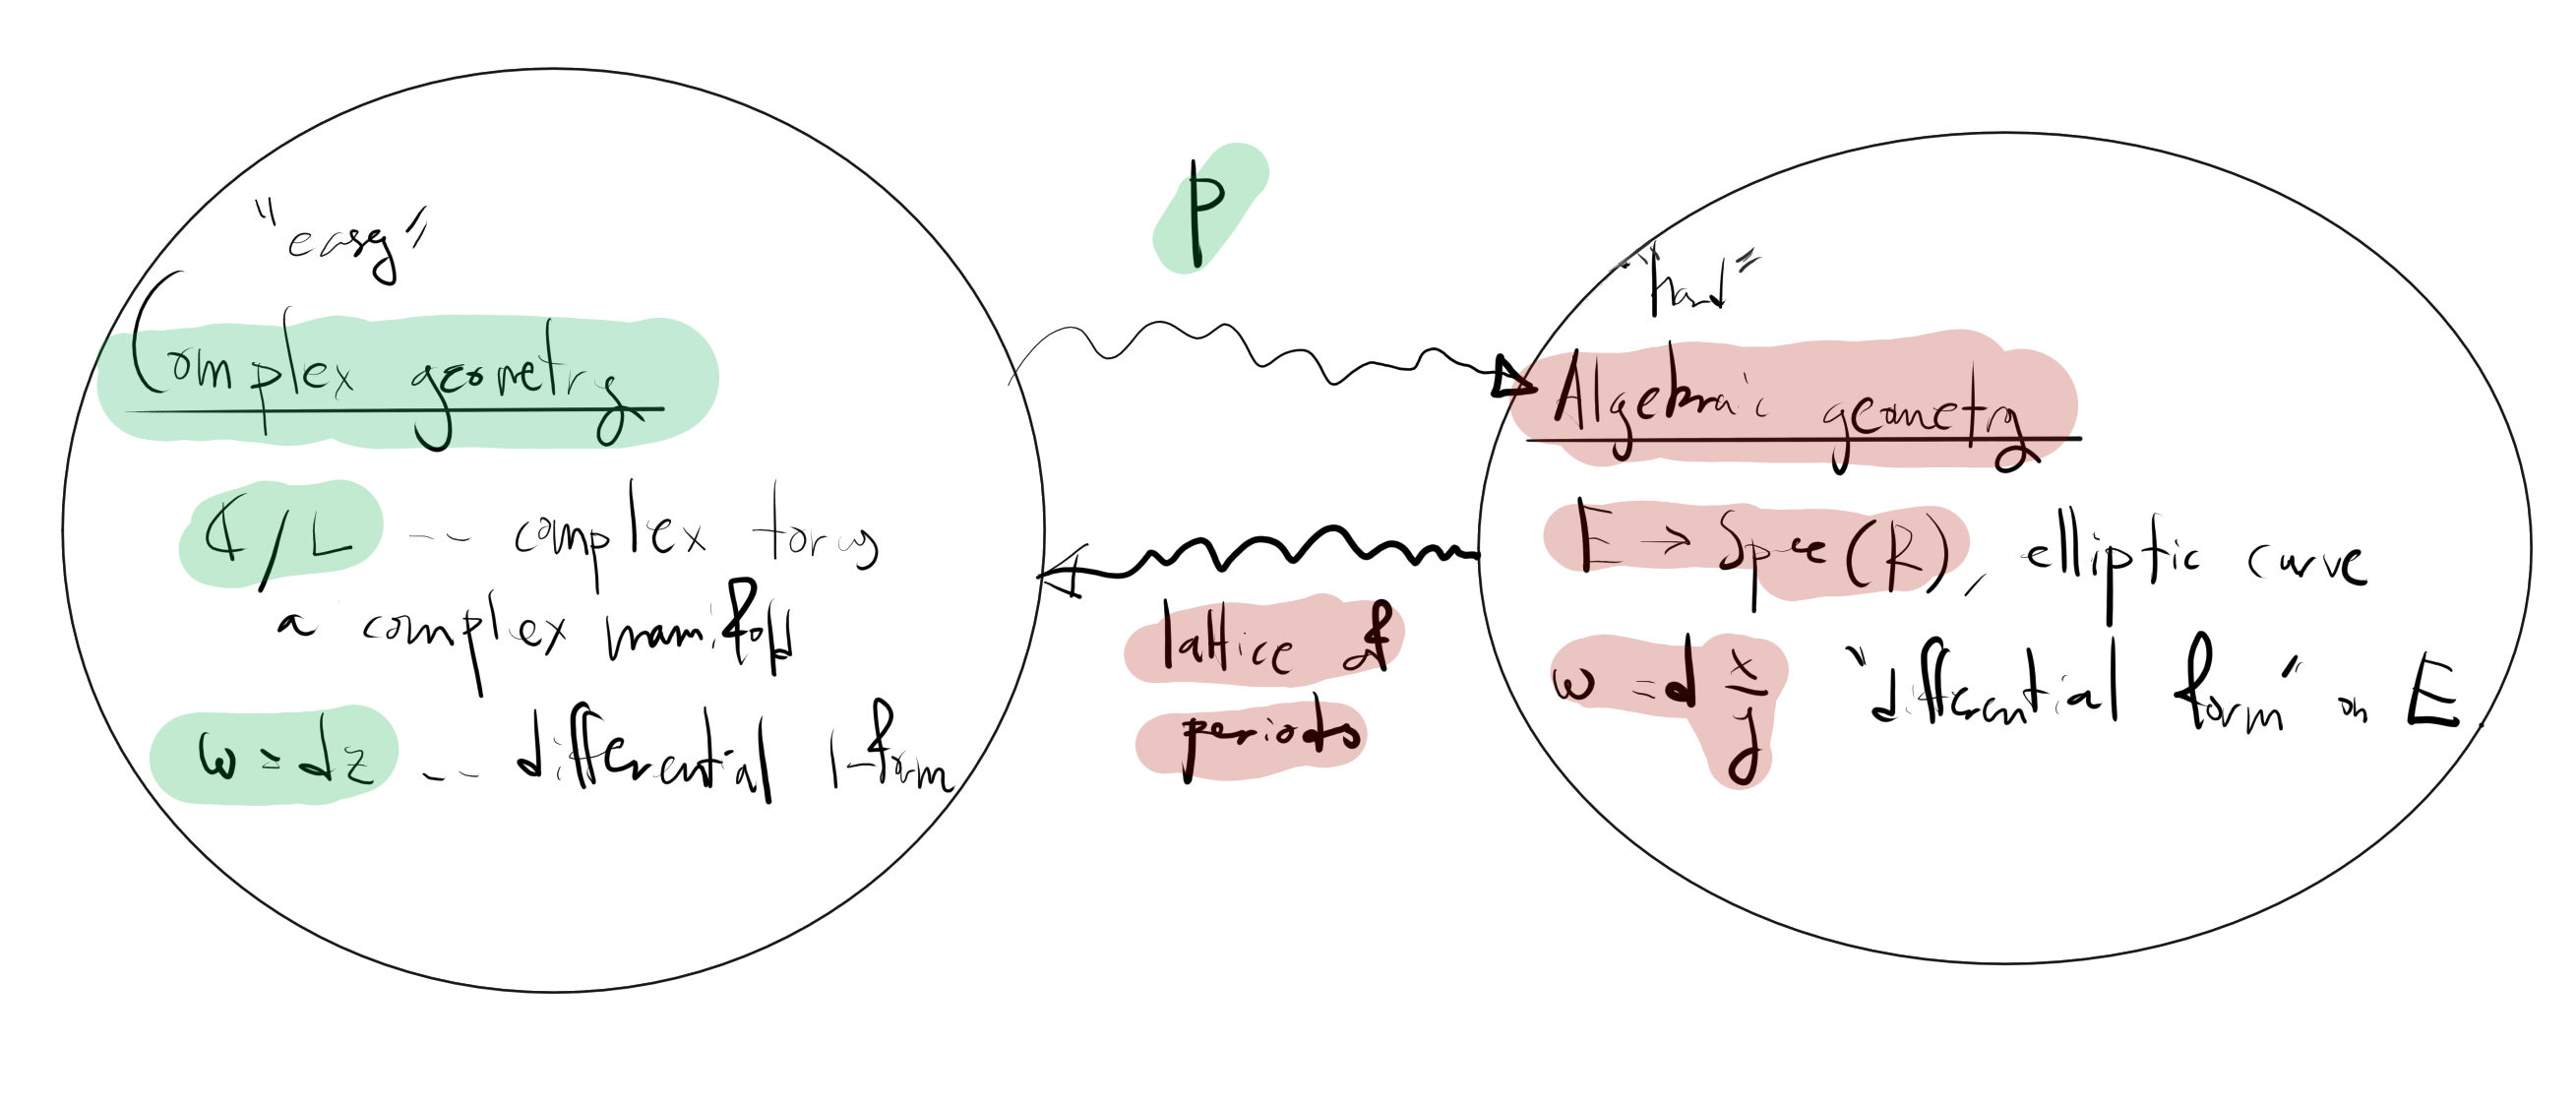 "easy"
Complex geometry
ℂ/L -- complex torus
a complex manifold
ω = dz -- differential 1-form
P
lattice of
periods
"hard"
Algebraic geometry
E → Spec(R), elliptic curve
ω = d x/y "differential form" on E